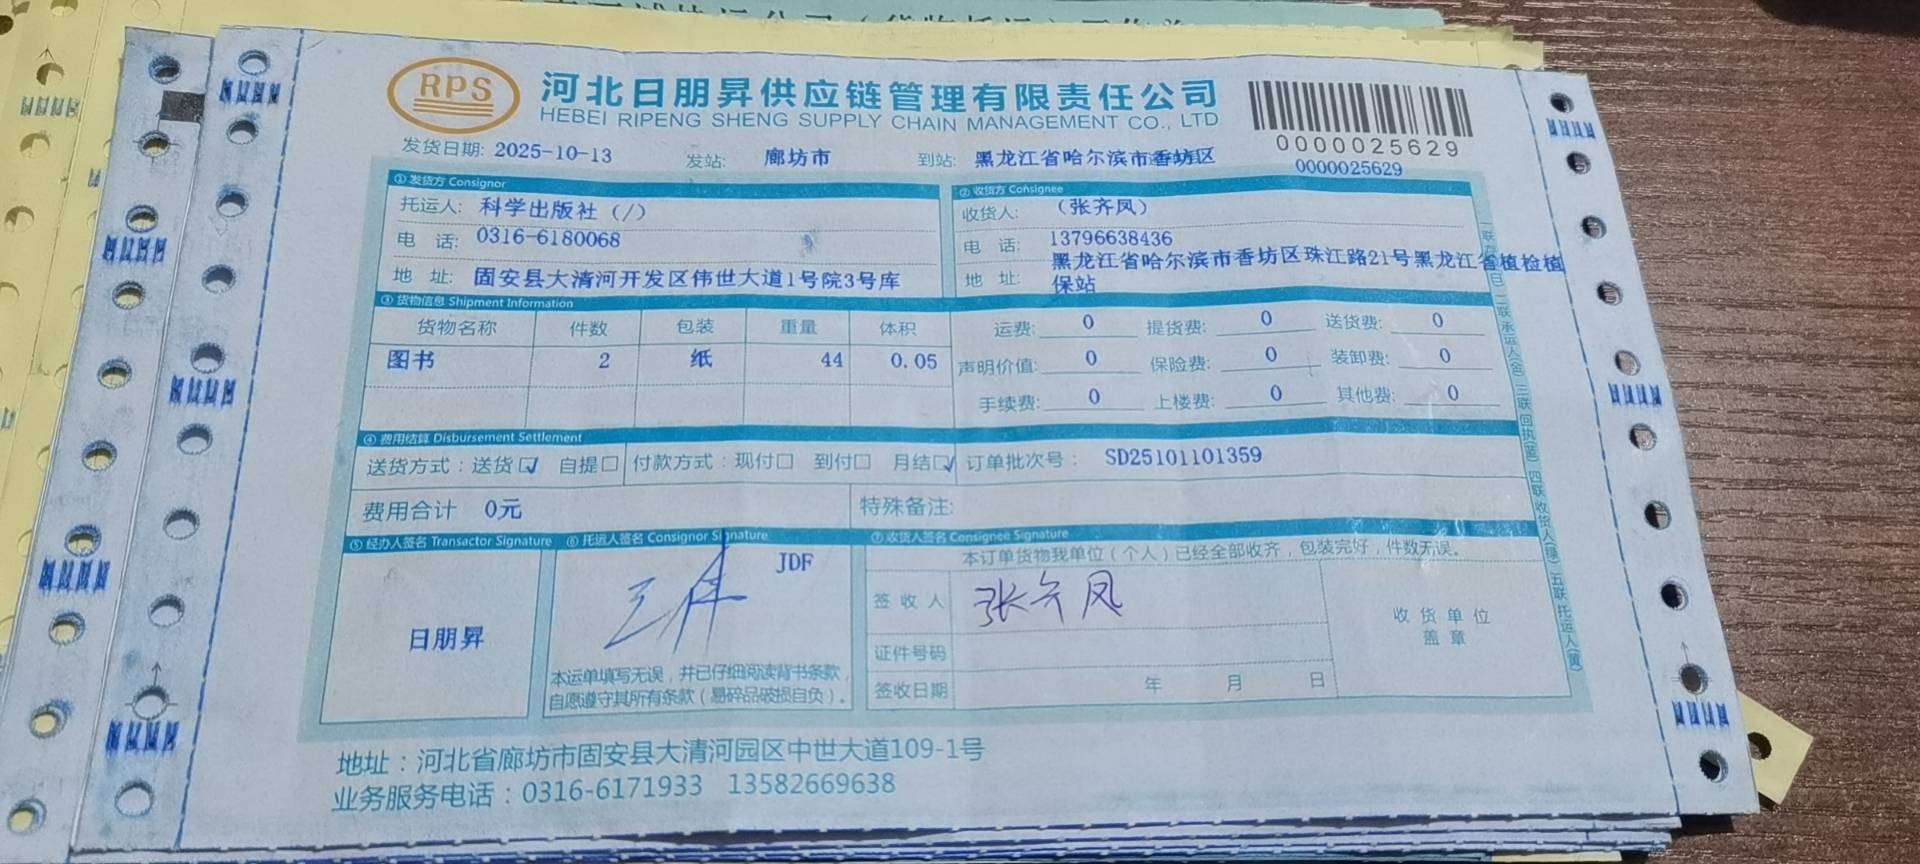 RPS
河北日朋昇供应链管理有限责任公司
HEBEI RIPENG SHENG SUPPLY CHAIN MANAGEMENT CO., LTD
0000025629
发货日期: 2025-10-13 发站: 廊坊市 到站: 黑龙江省哈尔滨市香坊区 0000025629
① 发货方 Consignor ② 收货方 Consignee
托运人: 科学出版社 (/) 收货人: (张齐凤)
电 话: 0316-6180068 电 话: 13796638436
地 址: 固安县大清河开发区伟世大道1号院3号库 地 址: 黑龙江省哈尔滨市香坊区珠江路21号黑龙江省植检植
保站
③ 货物信息 Shipment Information
货物名称 件数 包装 重量 体积 运费: 0 提货费: 0 送货费: 0
图书 2 纸 44 0.05 声明价值: 0 保险费: 0 装卸费: 0
手续费: 0 上楼费: 0 其他费: 0
④ 费用结算 Disbursement Settlement
送货方式：送货☑ 自提□ 付款方式：现付□ 到付□ 月结☑ 订单批次号： SD25101101359
费用合计 0元 特殊备注:
⑤ 经办人签名 Transactor Signature ⑥ 托运人签名 Consignor Signature ⑦ 收货人签名 Consignee Signature
本订单货物我单位（个人）已经全部收齐，包装完好，件数无误。
JDF
签 收 人 张齐凤
收 货 单 位
盖 章
日朋昇
证件号码
本运单填写无误，并已仔细阅读背书条款，
自愿遵守其所有条款（易碎品破损自负）。
签收日期 年 月 日
地址：河北省廊坊市固安县大清河园区中世大道109-1号
业务服务电话：0316-6171933 13582669638